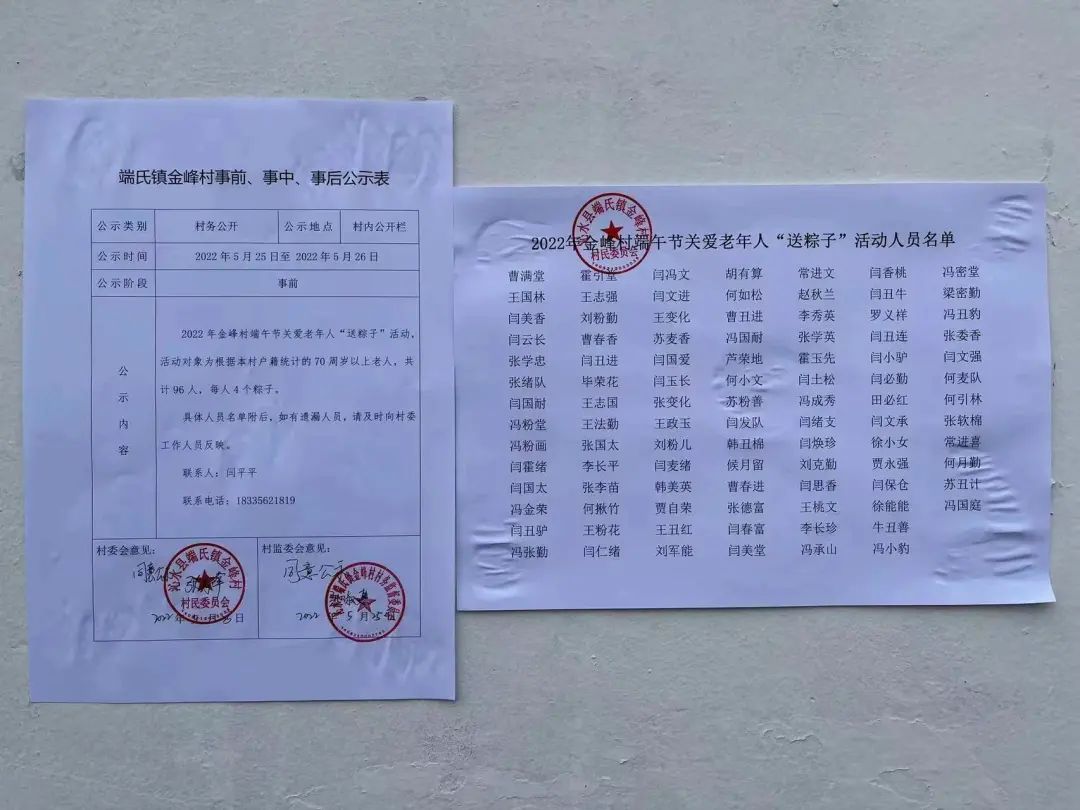 端氏镇金峰村事前、事中、事后公示表
公示类别 村务公开 公示地点 村内公开栏
公示时间 2022年5月25日至2022年5月26日
公示阶段 事前
公示内容
2022年金峰村端午节关爱老年人“送粽子”活动,
活动对象为根据本村户籍统计的70周岁以上老人,共
计96人,每人4个粽子。
具体人员名单附后,如有遗漏人员,请及时向村委
工作人员反映。
联系人:闫平平
联系电话:18335621819
村委会意见: 村监委会意见:
同意 同意公示
2022年 月 日 2022 5月25日
沁水县端氏镇金峰村
村民委员会
2022年金峰村端午节关爱老年人“送粽子”活动人员名单
沁水县端氏镇金峰村
村民委员会
曹满堂 霍引堂 闫冯文 胡有算 常进文 闫香桃 冯密堂
王国林 王志强 闫文进 何如松 赵秋兰 闫丑牛 梁密勤
闫美香 刘粉勤 王变化 曹丑进 李秀英 罗义样 冯丑豹
闫云长 曹春香 苏麦香 冯国耐 张学英 闫丑连 张委香
张学忠 闫丑进 闫国爱 芦荣地 霍玉先 闫小驴 闫文强
张绪队 毕荣花 闫玉长 何小文 闫土松 闫必勤 何麦队
闫国耐 王志国 张变化 苏粉善 冯成秀 田必红 何引林
冯粉堂 王法勤 王政玉 闫发队 闫绪支 闫文承 张软棉
冯粉画 张国太 刘粉儿 韩丑棉 闫焕珍 徐小女 常进喜
闫霍绪 李长平 闫麦绪 候月留 刘克勤 贾永强 何月勤
闫国太 张李苗 韩美英 曹春进 闫思香 闫保仓 苏丑计
冯金荣 何揪竹 贾自荣 张德富 王桃文 徐能能 冯国庭
闫丑驴 王粉花 王丑红 闫春富 李长珍 牛丑善
冯张勤 闫仁绪 刘军能 闫美堂 冯承山 冯小豹